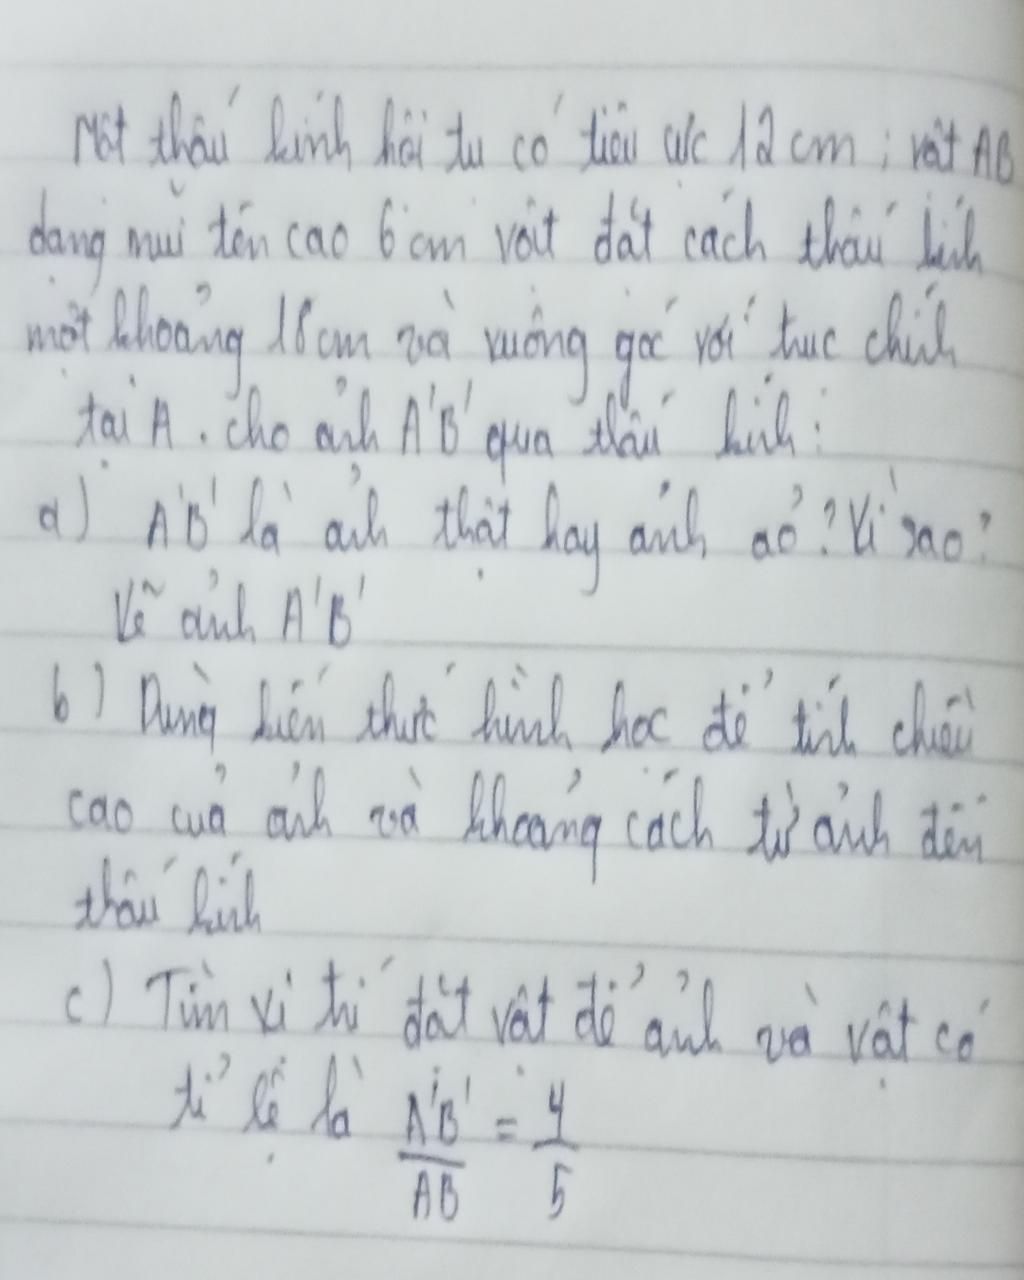 Một thấu kính hội tụ có tiêu cực 12 cm; vật AB
dạng mũi tên cao 6 cm vật đặt cách thấu kính
một khoảng 18 cm và vuông góc với trục chính
tại A. cho ảnh A'B' qua thấu kính:
a) A'B' là ảnh thật hay ảnh ảo? Vì sao?
Vẽ ảnh A'B'
b) Dùng kiến thức hình học để tính chiều
cao của ảnh và khoảng cách từ ảnh đến
thấu kính
c) Tìm vị trí đặt vật để ảnh và vật có
tỉ lệ là A'B'/AB = 4/5